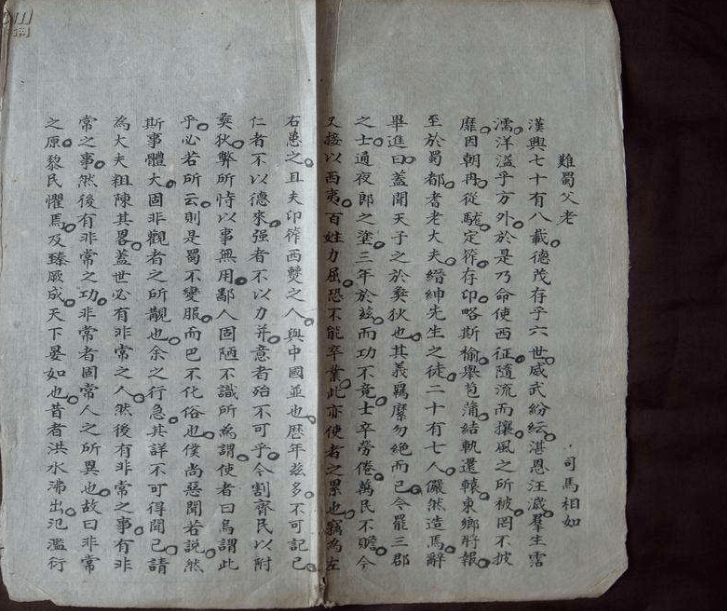 難蜀父老
司馬相如
漢興七十有八載德茂存乎六世威武紛紜湛恩汪濊羣生霑
濡洋溢乎方外於是乃命使西征隨流而攘風之所被罔不披
靡因朝冉從駹定筰存卭略斯榆舉苞蒲結軌還轅東鄉將報
至於蜀都耆老大夫縉紳先生之徒二十有七人儼然造焉辭
畢進曰蓋聞天子之於夷狄也其義羈縻勿絕而已今罷三郡
之士通夜郎之塗三年於茲而功不竟士卒勞倦萬民不贍今
又接以西夷百姓力屈恐不能卒業此亦使者之累也竊為左
右患之且夫卭筰西僰之人與中國並也歷年茲多不可記已
仁者不以德來强者不以力并意者殆不可乎今割齊民以附
夷狄弊所恃以事無用鄙人固陋不識所為謂使者曰烏謂此
乎必若所云則是蜀不變服而巴不化俗也僕尚惡聞若說然
斯事體大固非觀者之所覯也余之行急其詳不可得聞已請
為大夫粗陳其畧蓋世必有非常之人然後有非常之事有非
常之事然後有非常之功非常者固常人之所異也故曰非常
之原黎民懼焉及臻厥成天下晏如也昔者洪水沸出氾濫衍